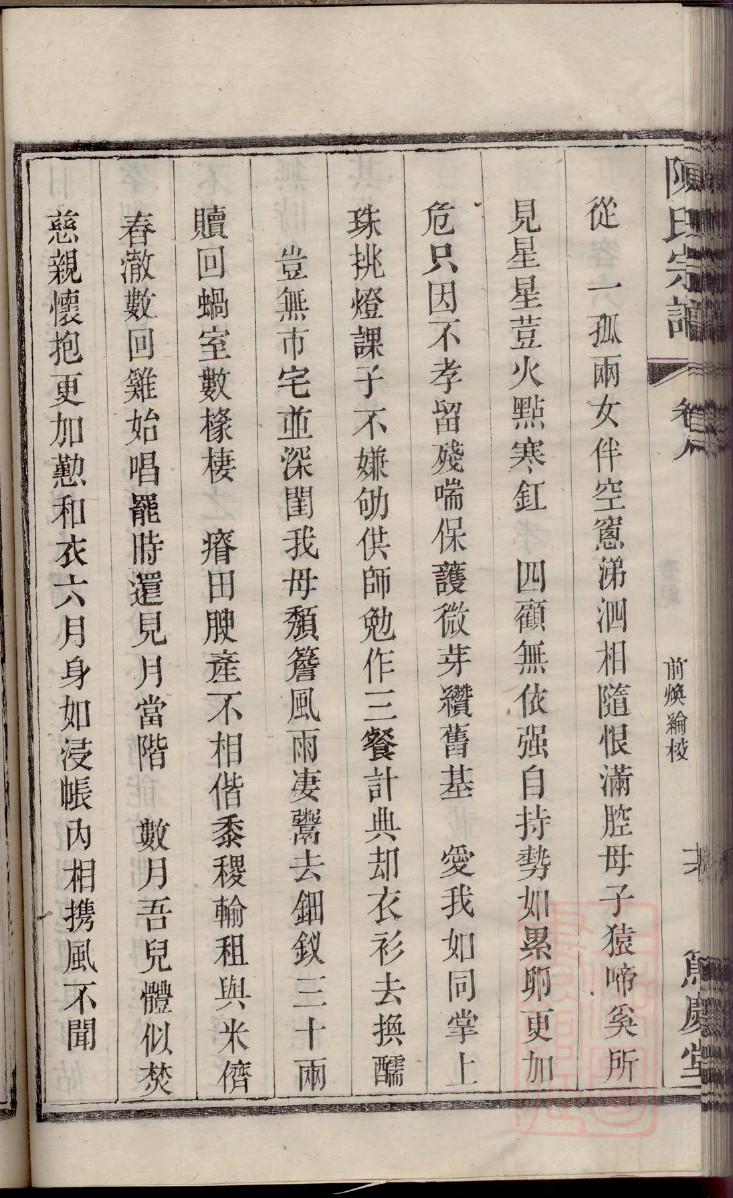 陳氏宗譜
卷八
前煥綸棱
篤慶堂
從　一孤兩女伴空窻涕泗相隨恨滿腔母子猿啼奚所
見星星荳火點寒釭　四顧無依强自持勢如累卵更加
危只因不孝留殘喘保護微芽纘舊基　愛我如同掌上
珠挑燈課子不嫌劬供師勉作三餐計典却衣衫去換醹
豈無市宅並深閨我母頽簷風雨凄鬻去鈿釵三十兩
贖回蝸室數椽棲　瘠田腴產不相偕黍稷輸租與米儕
春澈數回雞始唱罷時還見月當階　數月吾兒體似焚
慈親懷抱更加懃和衣六月身如浸帳內相携風不聞